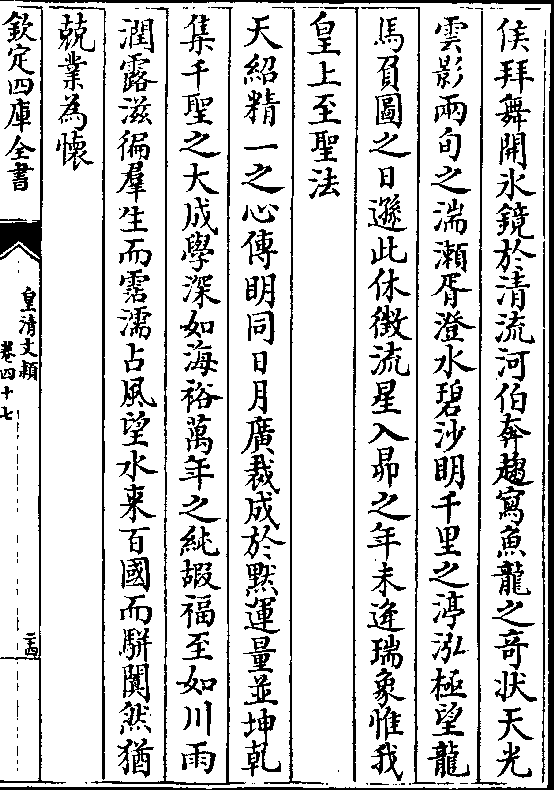 侯拜舞開氷鏡於清流河伯奔趨寫魚龍之竒状天光
雲影兩旬之湍瀬胥澄水碧沙明千里之渟泓極望龍
馬負圖之日遜此休徴流星入昴之年未逢瑞象惟我
皇上至聖法
天紹精一之心傳明同日月廣裁成於黙運量並坤乾
集千聖之大成學深如海裕萬年之純嘏福至如川雨
潤露滋徧羣生而霑濡占風望水来百國而駢闐然猶
兢業為懐
欽定四庫全書
皇清文頴
卷四十七
二十四